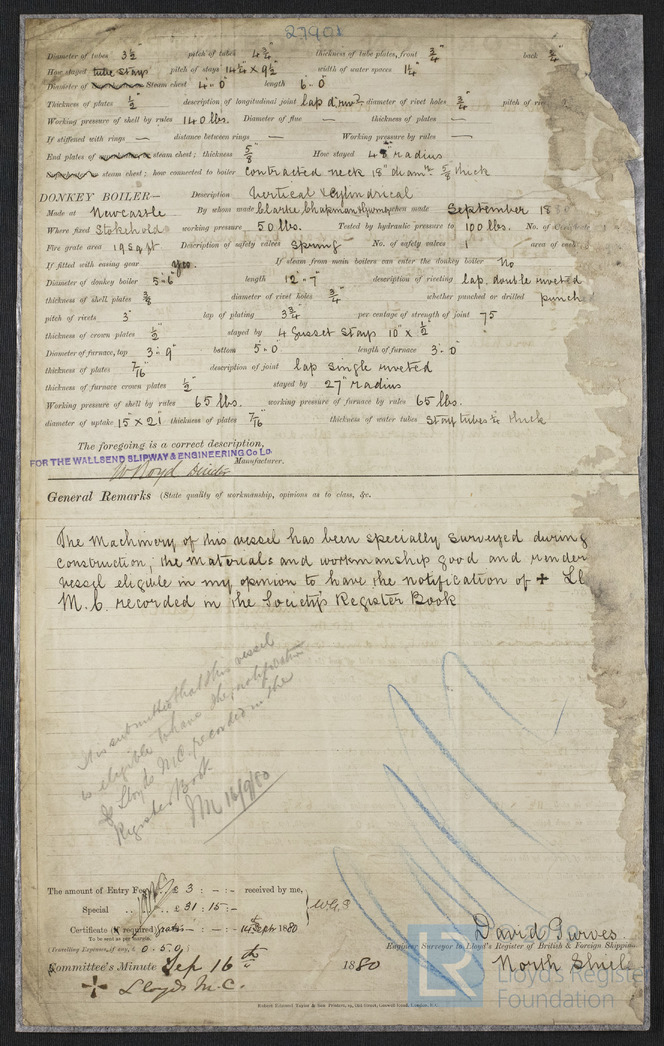 27901
Diameter of tubes 3½" pitch of tubes 4¾" thickness of tube plates, front ¾" back ¾"
How stayed tube stays pitch of stays 14¼" x 9½" width of water spaces 1¼"
Diameter of Steam chest 4'-0" length 6'-0"
Thickness of plates ½" description of longitudinal joint lap d. riv. diameter of rivet holes ¾" pitch of ri
Working pressure of shell by rules 140 lbs. Diameter of flue — thickness of plates —
If stiffened with rings — distance between rings — Working pressure by rules —
End plates of steam chest; thickness ⅝" How stayed 48" radius
steam chest; how connected to boiler Contracted neck 18" diamr ⅝ thick
DONKEY BOILER— Description Vertical & Cylindrical
Made at Newcastle By whom made Clarke Chapman when made September 18
Where fixed Stokehold working pressure 50 lbs. Tested by hydraulic pressure to 100 lbs. No. of
Fire grate area 19 sq ft Description of safety valves Spring No. of safety valves 1 area of each
If fitted with easing gear Yes. If steam from main boilers can enter the donkey boiler No
Diameter of donkey boiler 5'-6" length 12'-7" description of riveting lap, double riveted
thickness of shell plates ⅜ diameter of rivet holes ¾" whether punched or drilled punch
pitch of rivets 3" lap of plating 3¾" per centage of strength of joint 75
thickness of crown plates ½" stayed by 4 Gusset Stays 10" x ½"
Diameter of furnace, top 3'-9" bottom 5'-0" length of furnace 3'-0"
thickness of plates 7/16" description of joint lap single riveted
thickness of furnace crown plates ½" stayed by 27" radius
Working pressure of shell by rules 65 lbs. working pressure of furnace by rules 65 lbs.
diameter of uptake 15" x 21" thickness of plates 7/16" thickness of water tubes Stay tubes ¼ thick
The foregoing is a correct description,
FOR THE WALLSEND SLIPWAY & ENGINEERING Co Ld.
W Boyd Manufacturer.
General Remarks (State quality of workmanship, opinions as to class, &c.
The Machinery of this vessel has been specially surveyed during
construction; the materials and workmanship good and render
vessel eligible in my opinion to have the notification of + Ll
M. C. recorded in the Society's Register Book
It is submitted that this vessel
is eligible to have the notification
of Lloyds M.C. recorded in the
Register Book.
JM 16/9/80
The amount of Entry Fee £ 3 : — : - received by me,
Special £ 31 : 15 : - W.G.S
Certificate (if required) gratis : — : - 14th Sept 1880
To be sent as per margin.
(Travelling Expenses, if any, £ 0 . 5 . 0)
David Purves
Engineer Surveyor to Lloyd's Register of British & Foreign Shipping
North Shiel
Committee's Minute Sep 16th 1880
+ Lloyds M.C.
LR
Lloyd's Register
Foundation